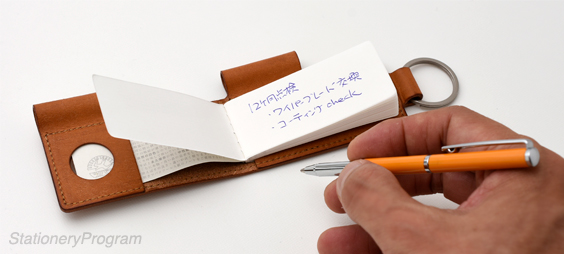 12ヶ月点検
・ワイパーブレード交換
・コーティングcheck
StationeryProgram